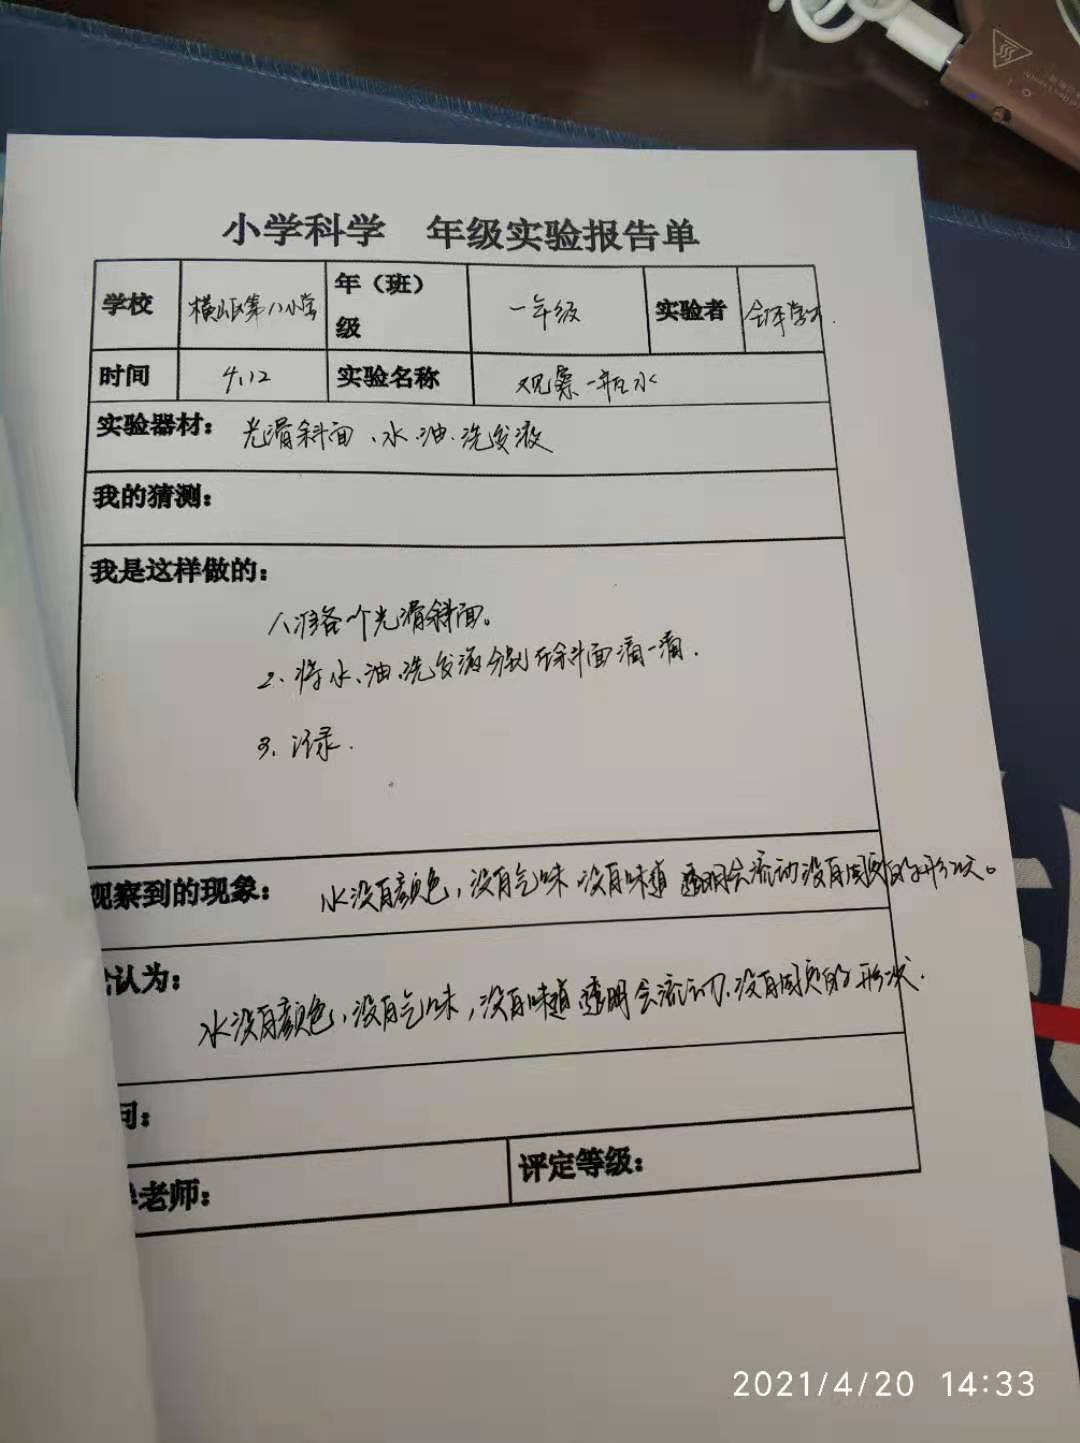 小学科学 年级实验报告单
学校 横山区第八小学 年（班）级 一年级 实验者 全体学生.
时间 4.12 实验名称 观察一瓶水
实验器材： 光滑斜面、水、油、洗发液
我的猜测：
我是这样做的：
1、准备一个光滑斜面。
2、将水、油、洗发液分别在斜面滴一滴.
3、记录.
观察到的现象： 水没有颜色，没有气味 没有味道 透明会流动没有固定的形状。
认为：
水没有颜色，没有气味，没有味道 透明会流动.没有固定的形状.
问：
老师： 评定等级：
2021/4/20 14:33